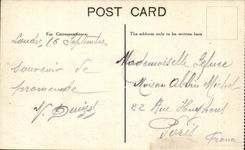 POST CARD
For Correspondence.
The address only to be written here
Londres 16 Septembre
Souvenir de
promenade
Mademoiselle
Maison Albin Michel
22 Rue Huyghens
Paris
France